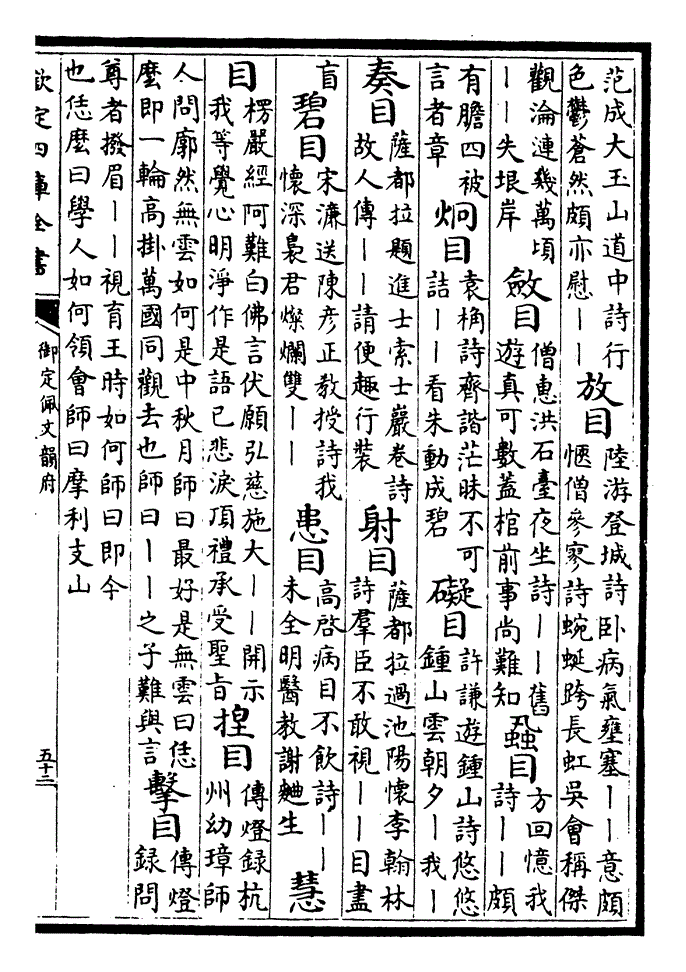 范成大玉山道中詩行色鬱蒼然頗亦慰丨丨 放目 陸游登城詩卧病氣壅塞丨丨意頗愜僧參寥詩蜿蜒跨長虹吳會稱傑
觀淪連幾萬頃丨丨失垠岸 斂目 僧惠洪石臺夜坐詩丨丨舊遊真可數蓋棺前事尚難知 蝨目 方回憶我詩丨丨頗
有膽四被言者章 炯目 袁桷詩齊諧茫昧不可詰丨丨看朱動成碧 礙目 許謙遊鍾山詩悠悠鍾山雲朝夕丨我丨
奏目 薩都拉題進士索士巖卷詩故人傳丨丨請便趣行裝 射目 薩都拉過池陽懷李翰林詩羣臣不敢視丨丨目盡
盲 碧目 宋濂送陳彦正教授詩我懷深裊君燦爛雙丨丨 患目 高啓病目不飲詩丨丨未全明醫教謝麯生 慧
目 楞嚴經阿難白佛言伏願弘慈施大丨丨開示我等覺心明淨作是語已悲淚頂禮承受聖旨 揑目 傳燈録杭州幼璋師
人問廓然無雲如何是中秋月師曰最好是無雲曰恁麽即一輪高掛萬國同觀去也師曰丨丨之子難與言 擊目 傳燈録問
尊者撥眉丨丨視育王時如何師曰即今也恁麽曰學人如何領會師曰摩利支山
欽定四庫全書
御定佩文韻府
五十三